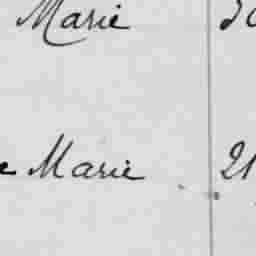 Marie
Marie 21